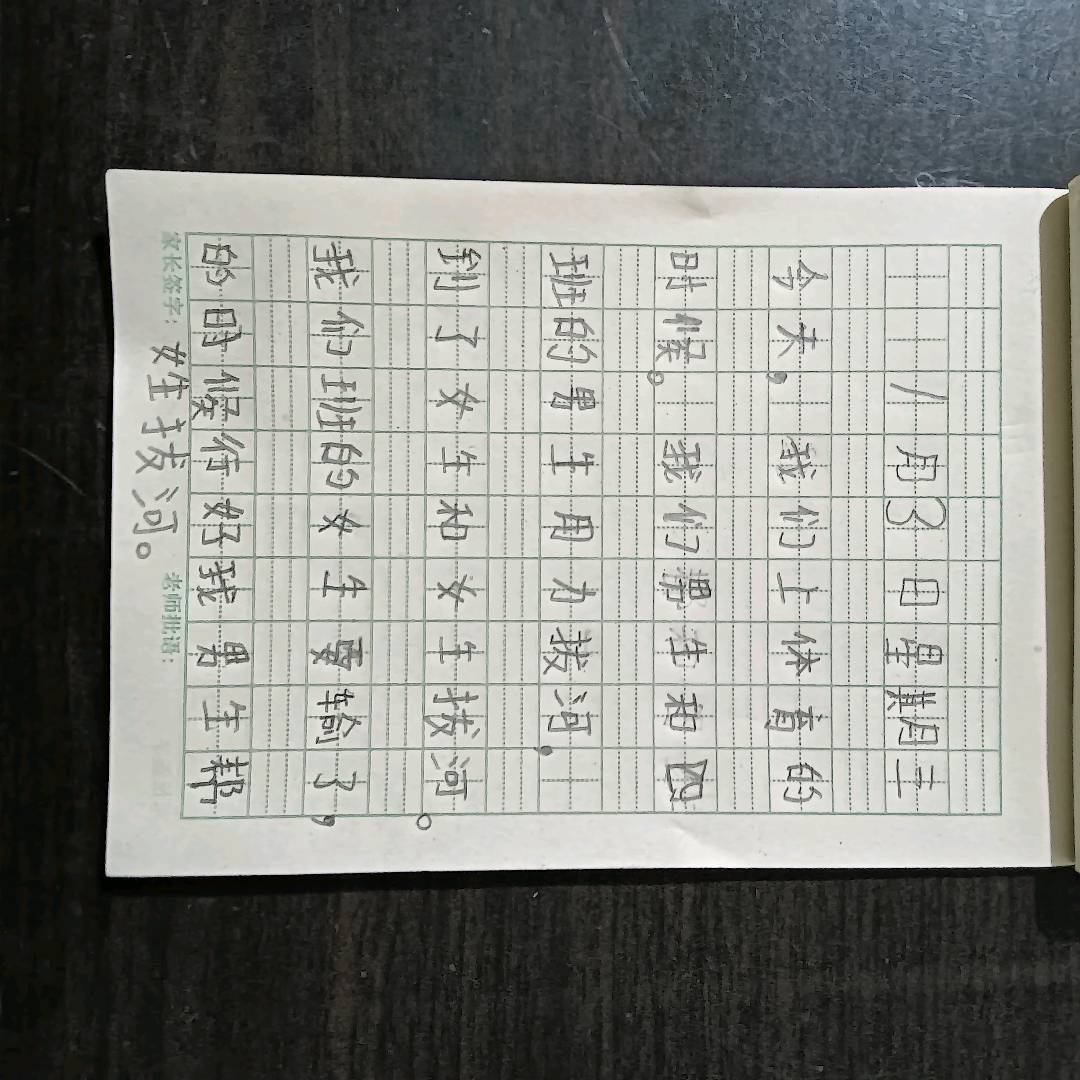 1月3日星期三
今天，我们上体育的
时候。我们男生和四
班的男生用力拔河，
到了女生和女生拔河。
我们班的女生要输了，
的时候行好我男生帮
女生拔河。
家长签字： 老师批语：